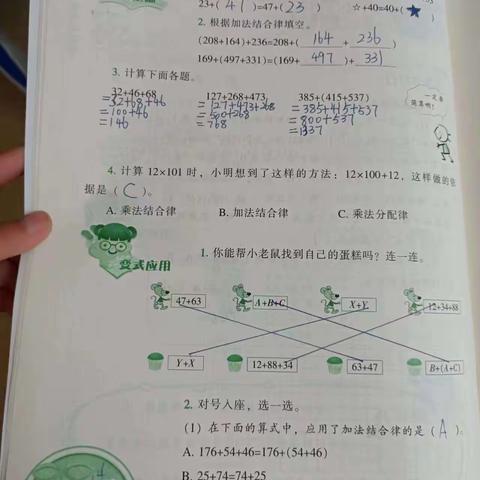 23+( 41 )=47+( 23 ) ☆+40=40+( ★ )
2. 根据加法结合律填空。
(208+164)+236=208+( 164 + 236 )
169+(497+331)=(169+ 497 )+ 331
3. 计算下面各题。
32+46+68 127+268+473 385+(415+537)
=32+68+46 =127+473+268 =385+415+537
=100+46 =500+268 =800+537
=146 =768 =1337
一定要
简算哟!
4. 计算 12×101 时，小明想到了这样的方法：12×100+12，这样做的依
据是( C )。
A. 乘法结合律 B. 加法结合律 C. 乘法分配律
变式应用
1. 你能帮小老鼠找到自己的蛋糕吗？连一连。
47+63 A+B+C X+Y 12+34+88
Y+X 12+88+34 63+47 B+(A+C)
2. 对号入座，选一选。
(1) 在下面的算式中，应用了加法结合律的是( A )。
A. 176+54+46=176+(54+46)
B. 25+74=74+25